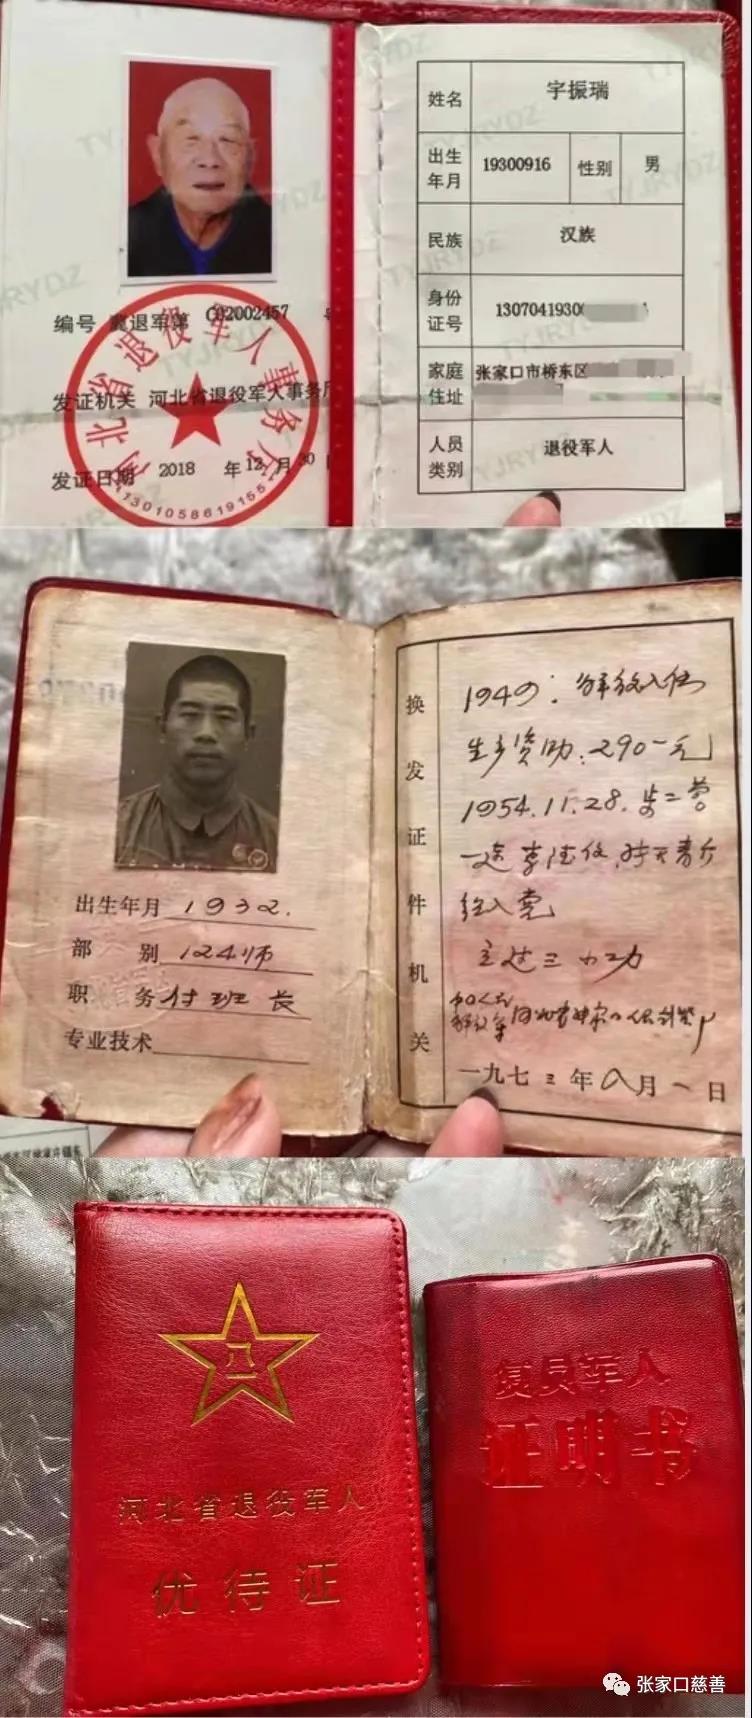 姓名 宇振瑞
出生年月 19300916 性别 男
民族 汉族
身份证号 1307041930
家庭住址 张家口市桥东区
人员类别 退役军人
编号 冀退军第 C02002457 号
发证机关 河北省退役军人事务厅
发证日期 2018 年 12 月 30 日
河北省退役军人事务厅
1301058619155
TYJRYDZ
出生年月 1932.
部别 124师
职务 付班长
专业技术
换发证件机关
1949: 解放入伍
生产资助:290一元
1954.11.28.
入党
立过三小功
一九七三年八月一日
八一
河北省退役军人
优待证
复员军人
证明书
张家口慈善